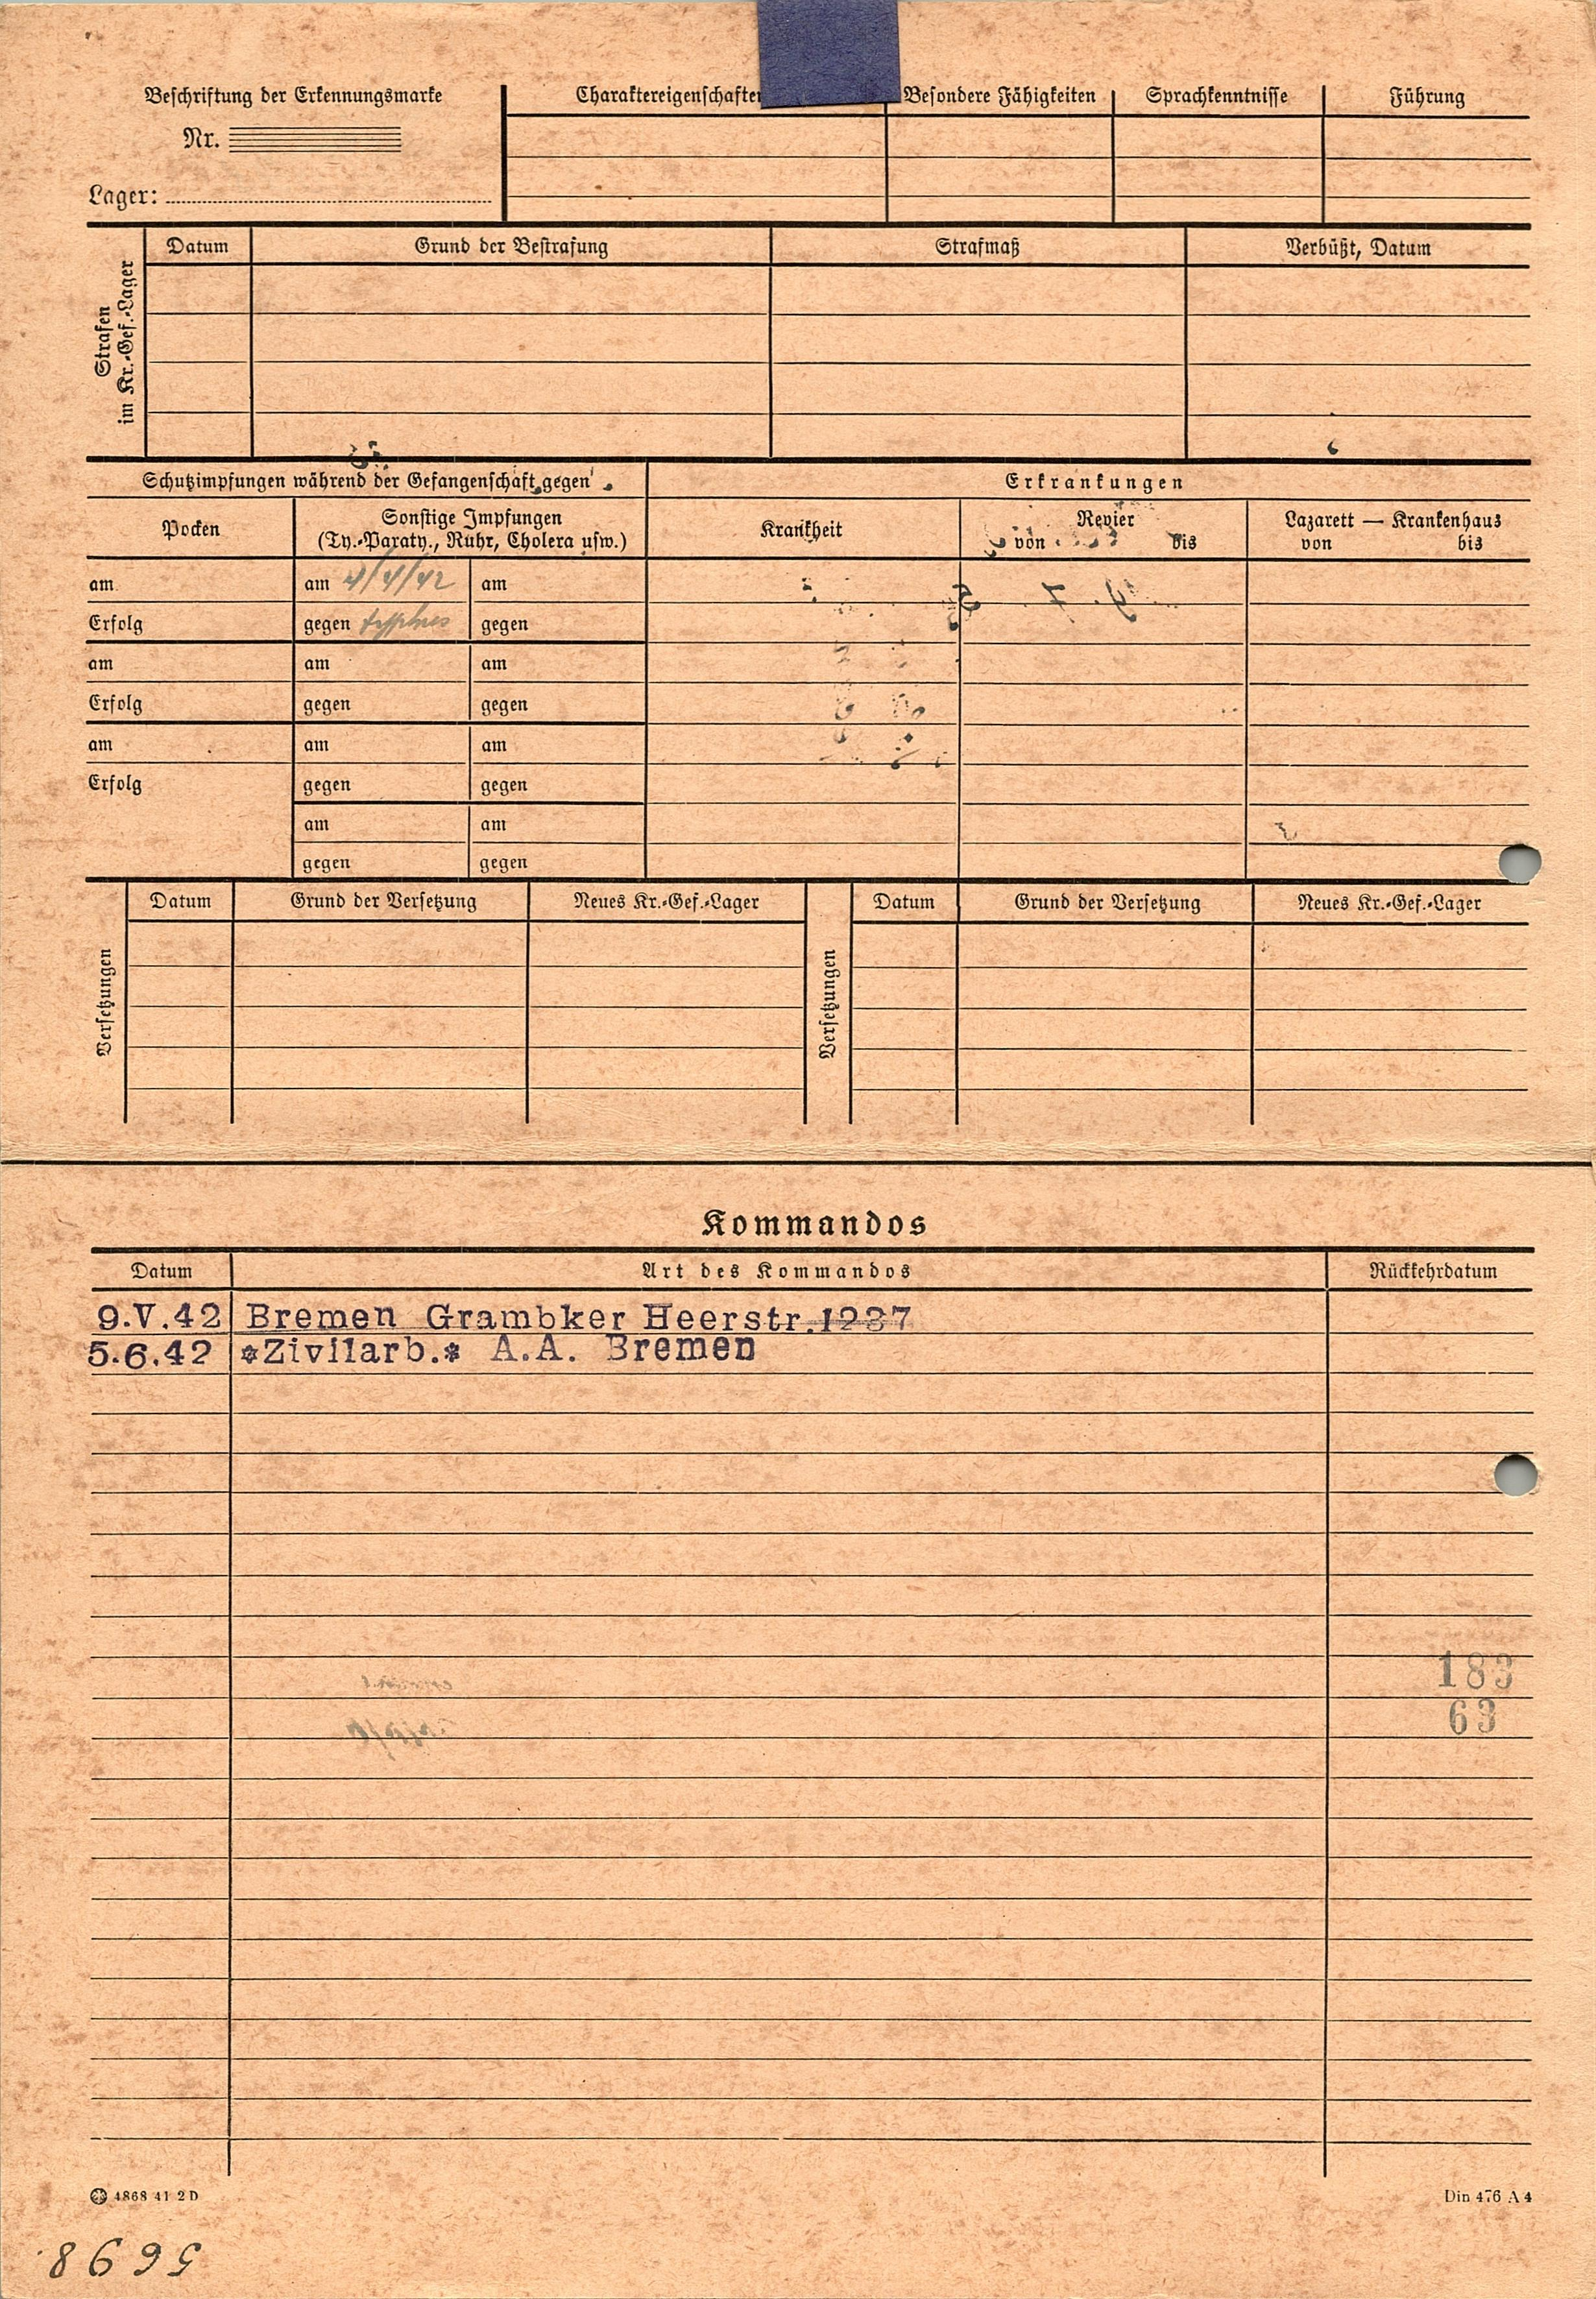 Beschriftung der Erkennungsmarke
Nr.
Lager:
Charaktereigenschaften Besondere Fähigkeiten Sprachkenntnisse Führung
Strafen im Kr.-Gef.-Lager
Datum Grund der Bestrafung Strafmaß Verbüßt, Datum
Schutzimpfungen während der Gefangenschaft gegen Erkrankungen
Pocken Sonstige Impfungen Krankheit Revier Lazarett — Krankenhaus
(Ty.-Paraty., Ruhr, Cholera usw.) von bis von bis
am am 4/4/42 am
Erfolg gegen typhus gegen
am am am
Erfolg gegen gegen
am am am
Erfolg gegen gegen
am am
gegen gegen
Versetzungen Datum Grund der Versetzung Neues Kr.-Gef.-Lager Versetzungen Datum Grund der Versetzung Neues Kr.-Gef.-Lager
Kommandos
Datum Art des Kommandos Rückkehrdatum
9.V.42 Bremen Grambker Heerstr.1237
5.6.42 *Zivilarb.* A.A. Bremen
183
63
4868 41 2D Din 476 A 4